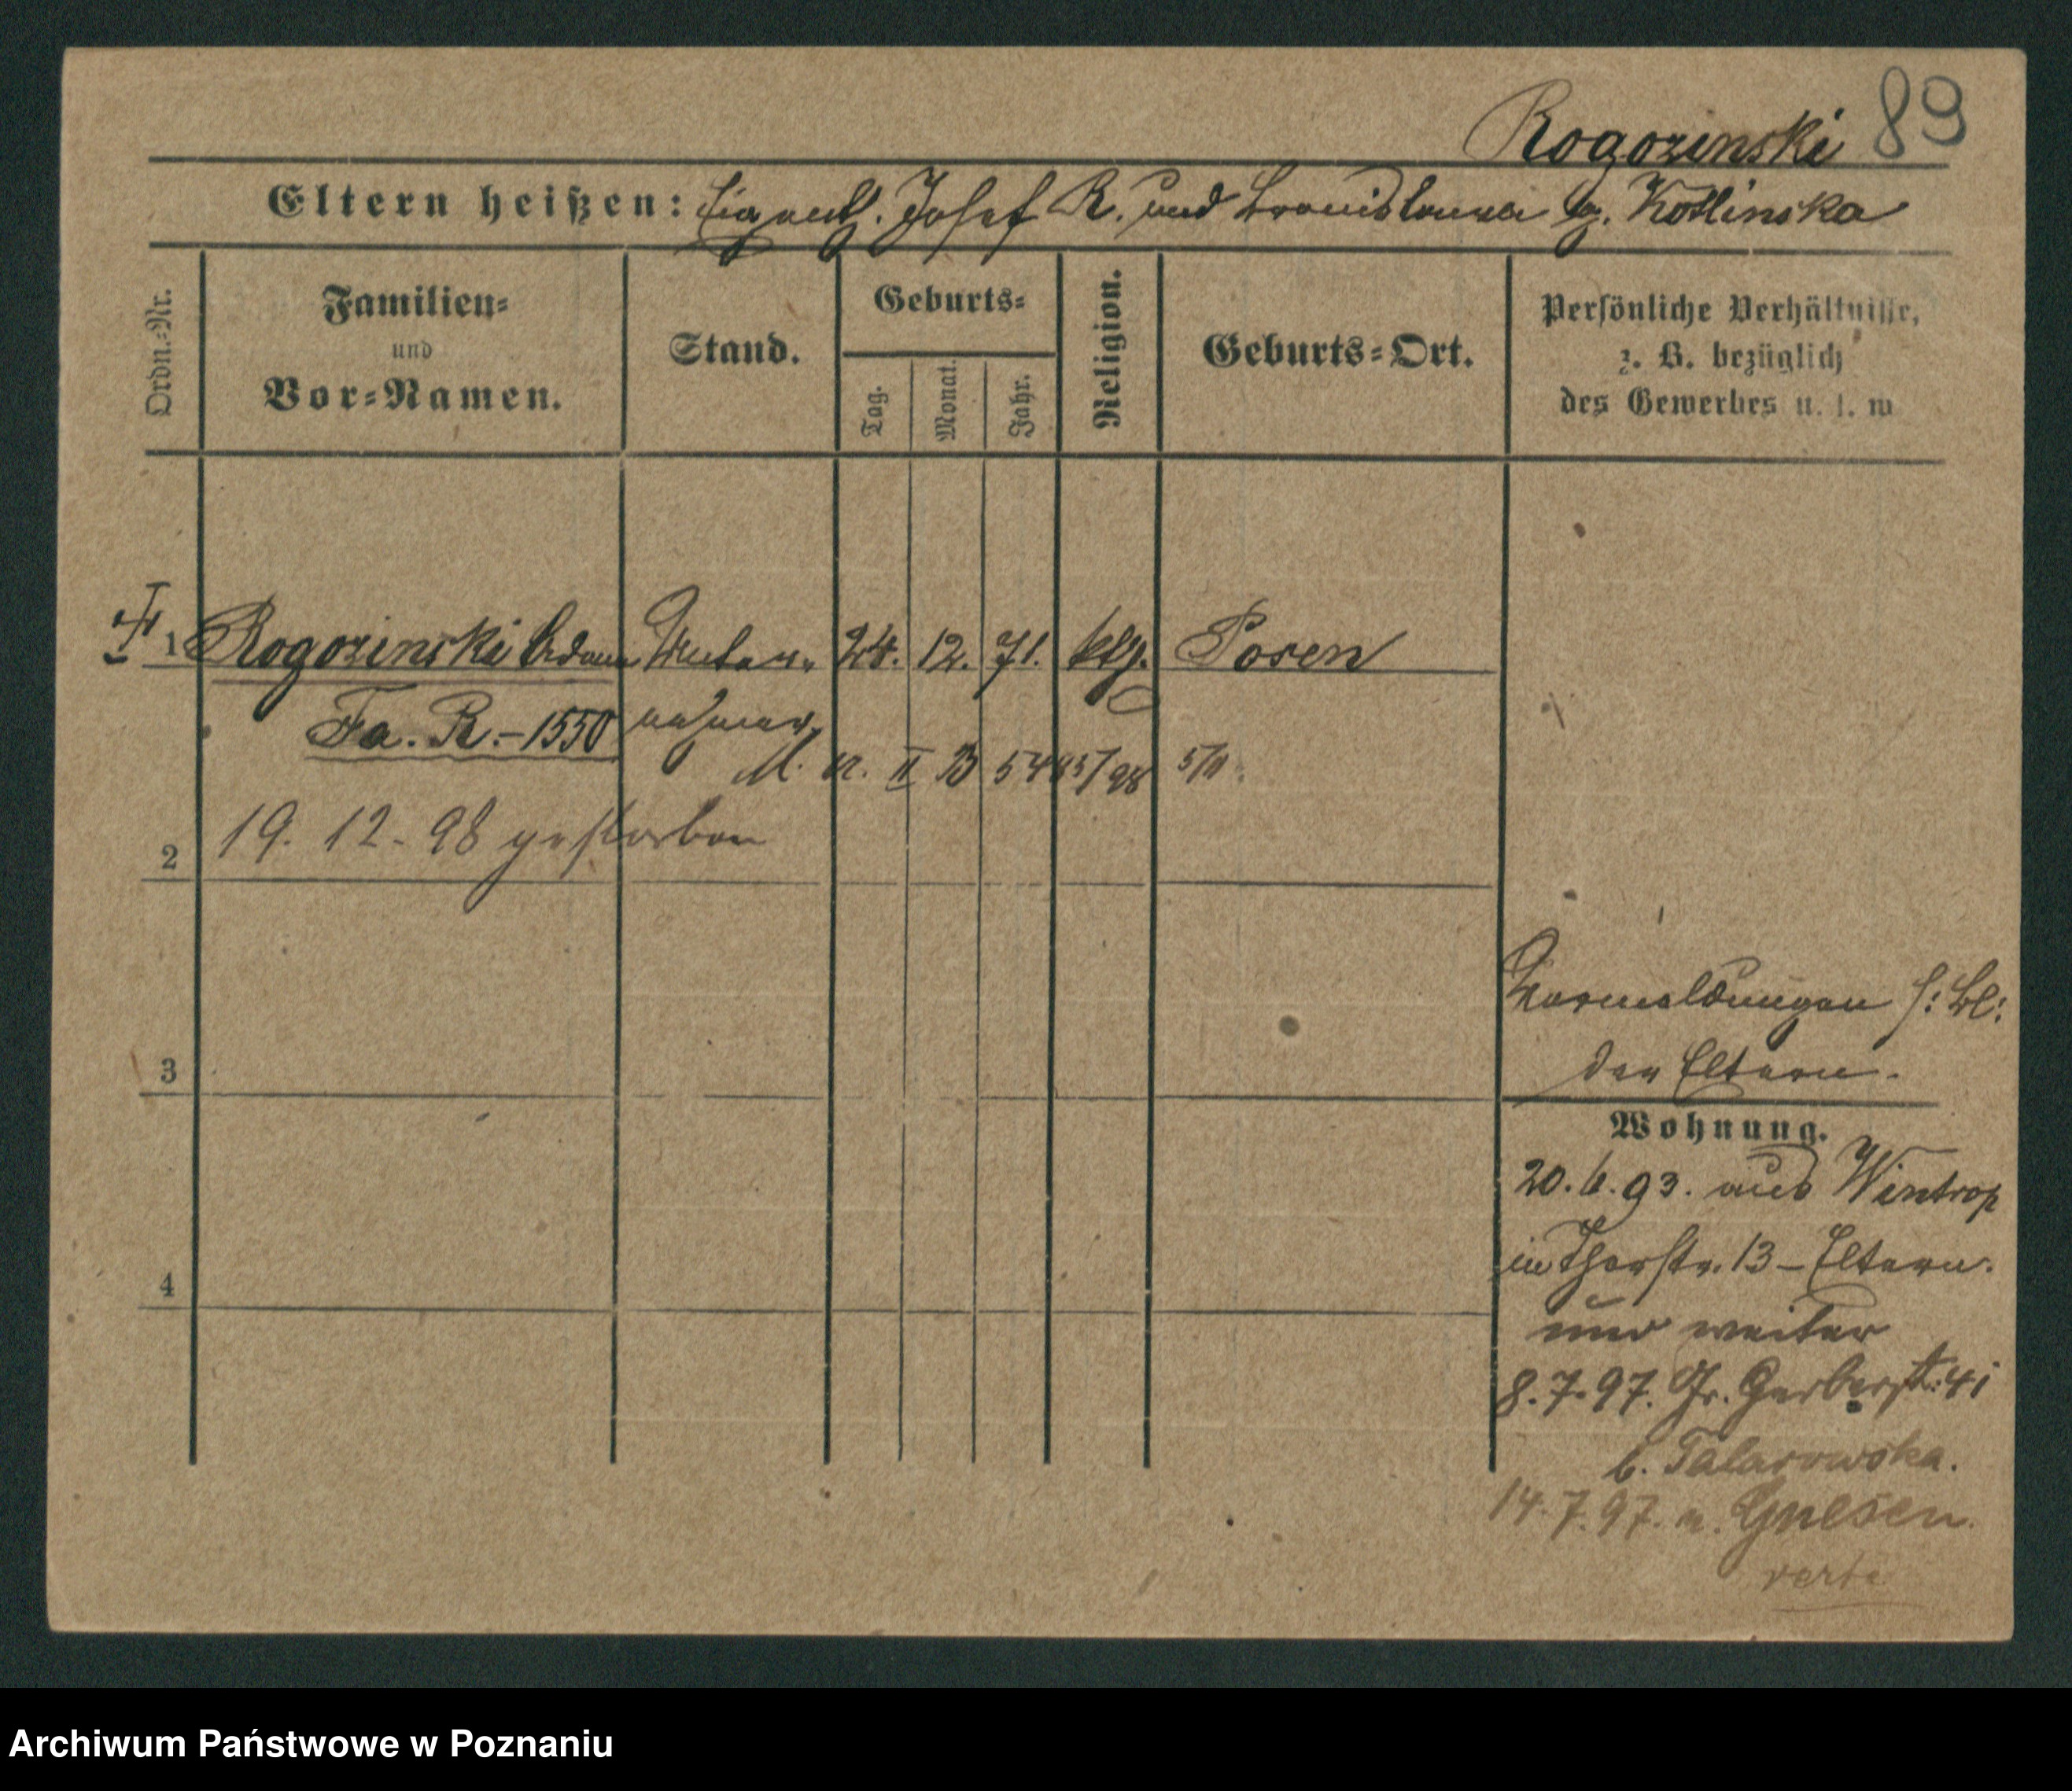 Rogozinski 89
Eltern heißen: Eigenth. Josef R. und Bronislawa g. Kotlinska
Ordn.-Nr.
Familien-
und
Vor-Namen.
Stand.
Geburts-
Tag.
Monat.
Jahr.
Religion.
Geburts-Ort.
Persönliche Verhältnisse,
z. B. bezüglich
des Gewerbes u. s. w
1 Rogozinski Adam Unter- 24. 12. 71. kth. Posen
Fa. R.-1550 nehmer
M. n. II B 5485/98 5/11.
19. 12. 98 gestorben
2
3
4
Vormeldungen s: Bl:
der Eltern.
Wohnung.
20. 6. 93. aus Wintrop
in Thorstr. 13 - Eltern.
und weiter
8. 7. 97. Gr. Gerberstr. 41
b. Talarowska.
14. 7. 97. n. Gnesen.
verte
Archiwum Państwowe w Poznaniu